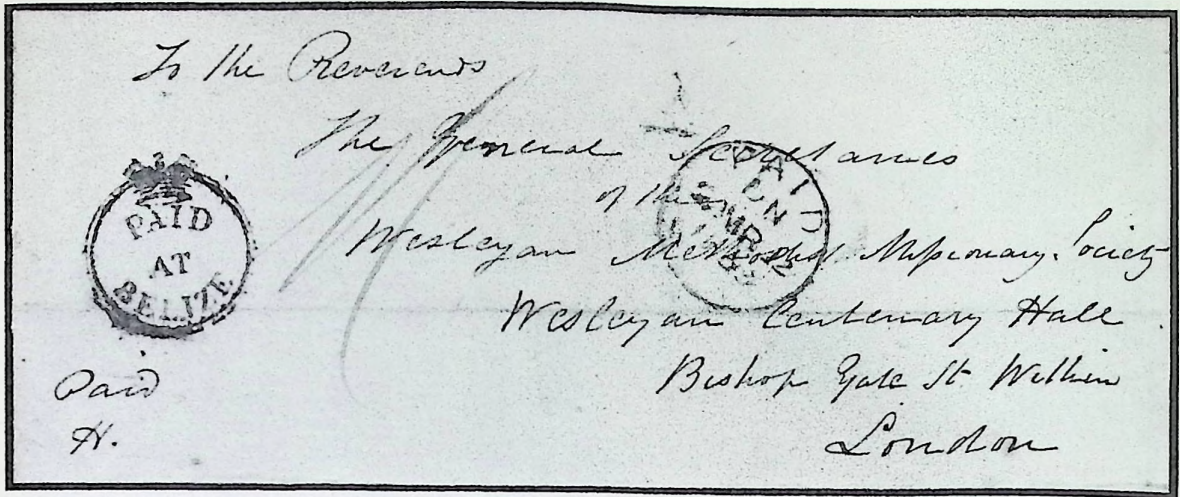 To the Reverends
The General Secretaries
of the
Wesleyan Methodist Missionary Society
Wesleyan Centenary Hall
Bishop Gate St Within
London
PAID
AT
BELIZE
Paid
H.
PAID
LN
MR 22